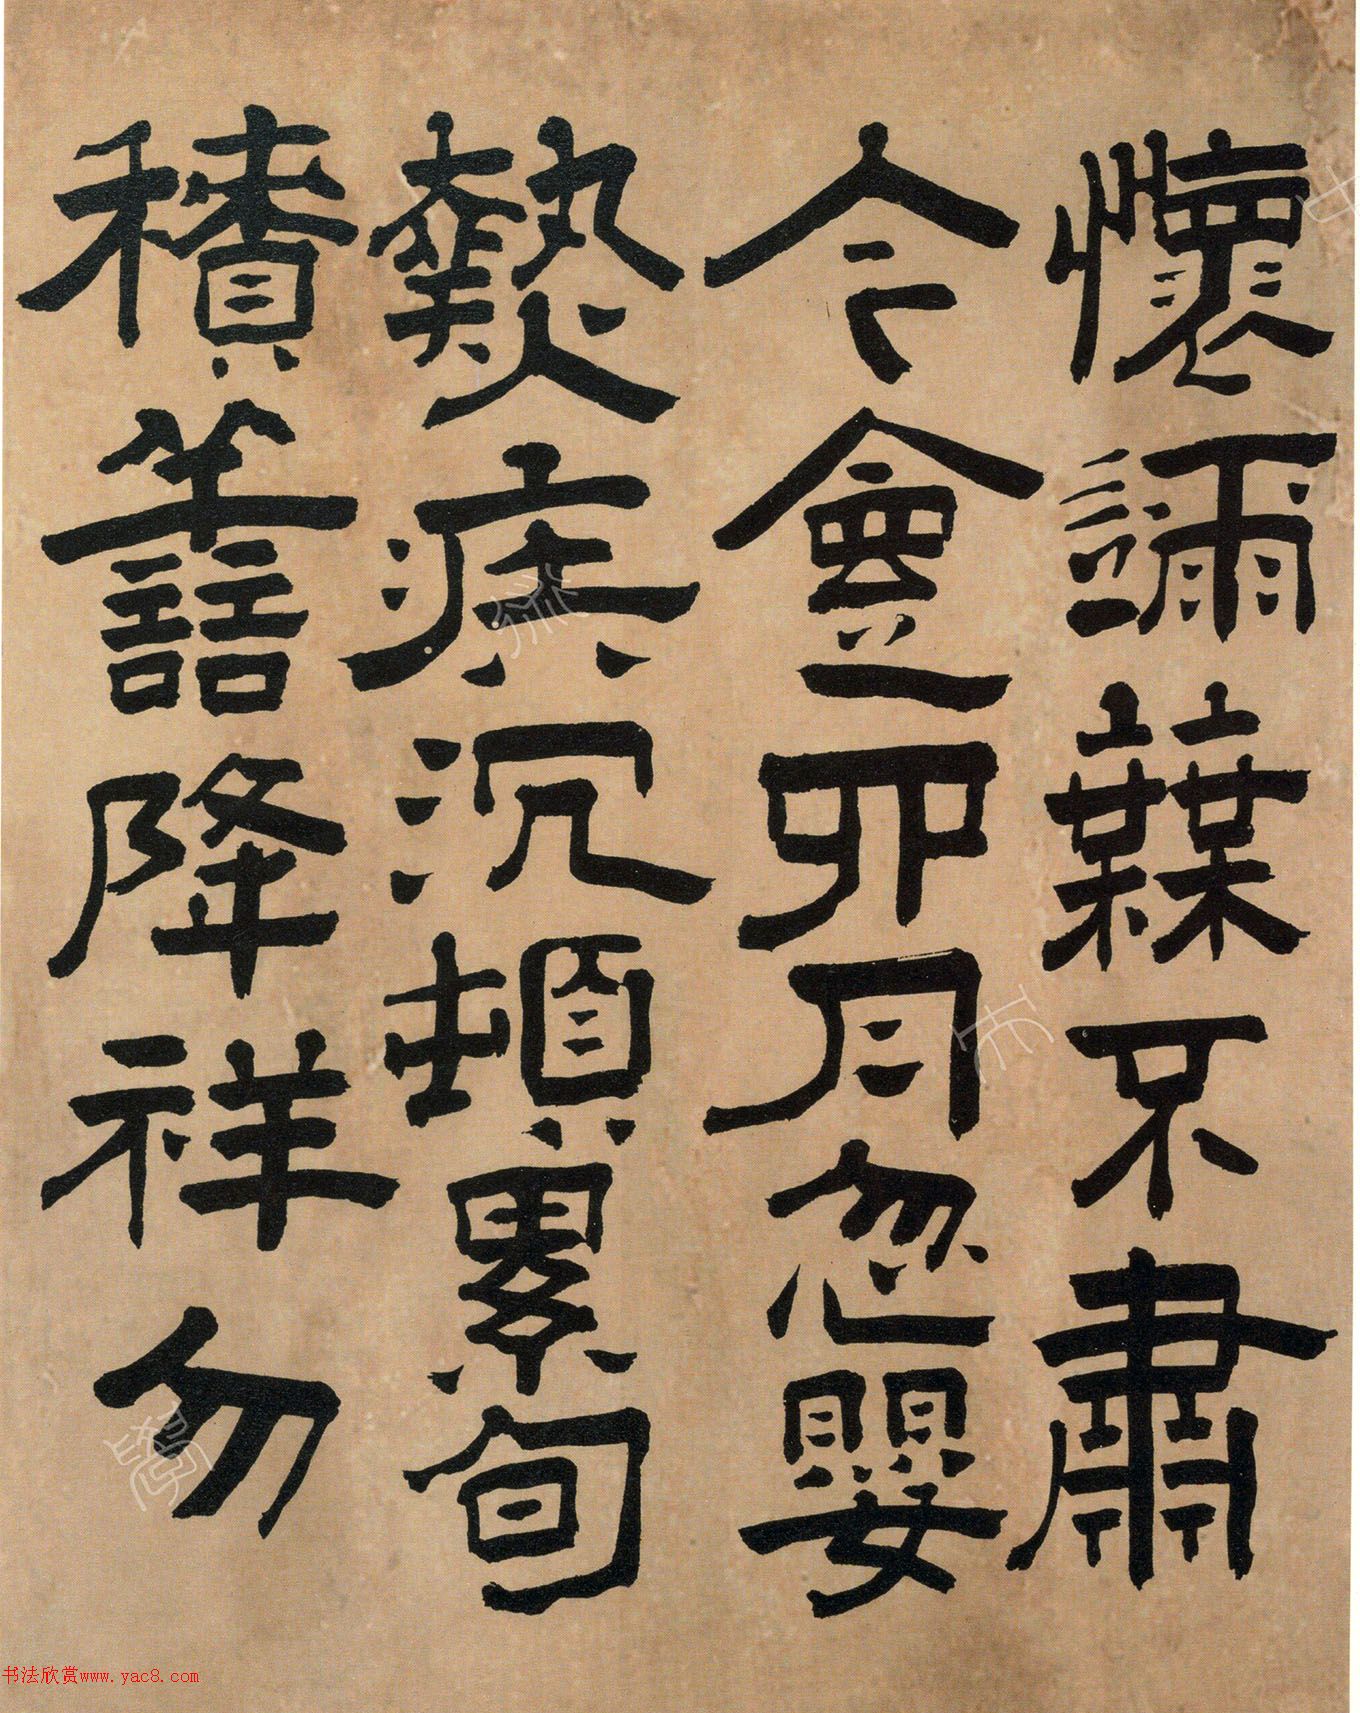 懷謌虩不肅
今會亚卯月忽嬰
𤍠疾沉頓累旬
積譱降祥勿
书法欣赏www.yac8.com